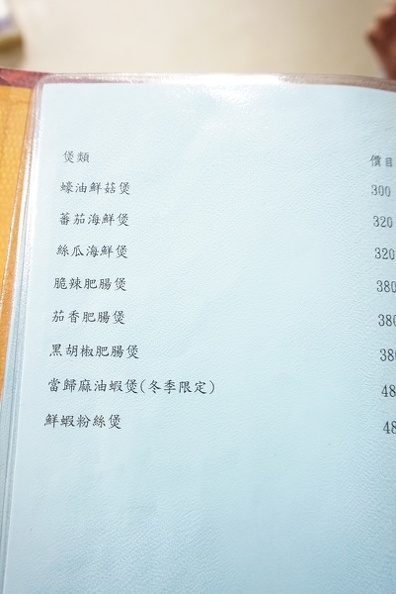 煲類 價目
蠔油鮮菇煲 300
蕃茄海鮮煲 320
絲瓜海鮮煲 320
脆辣肥腸煲 380
茄香肥腸煲 380
黑胡椒肥腸煲 380
當歸麻油蝦煲(冬季限定) 48
鮮蝦粉絲煲 48